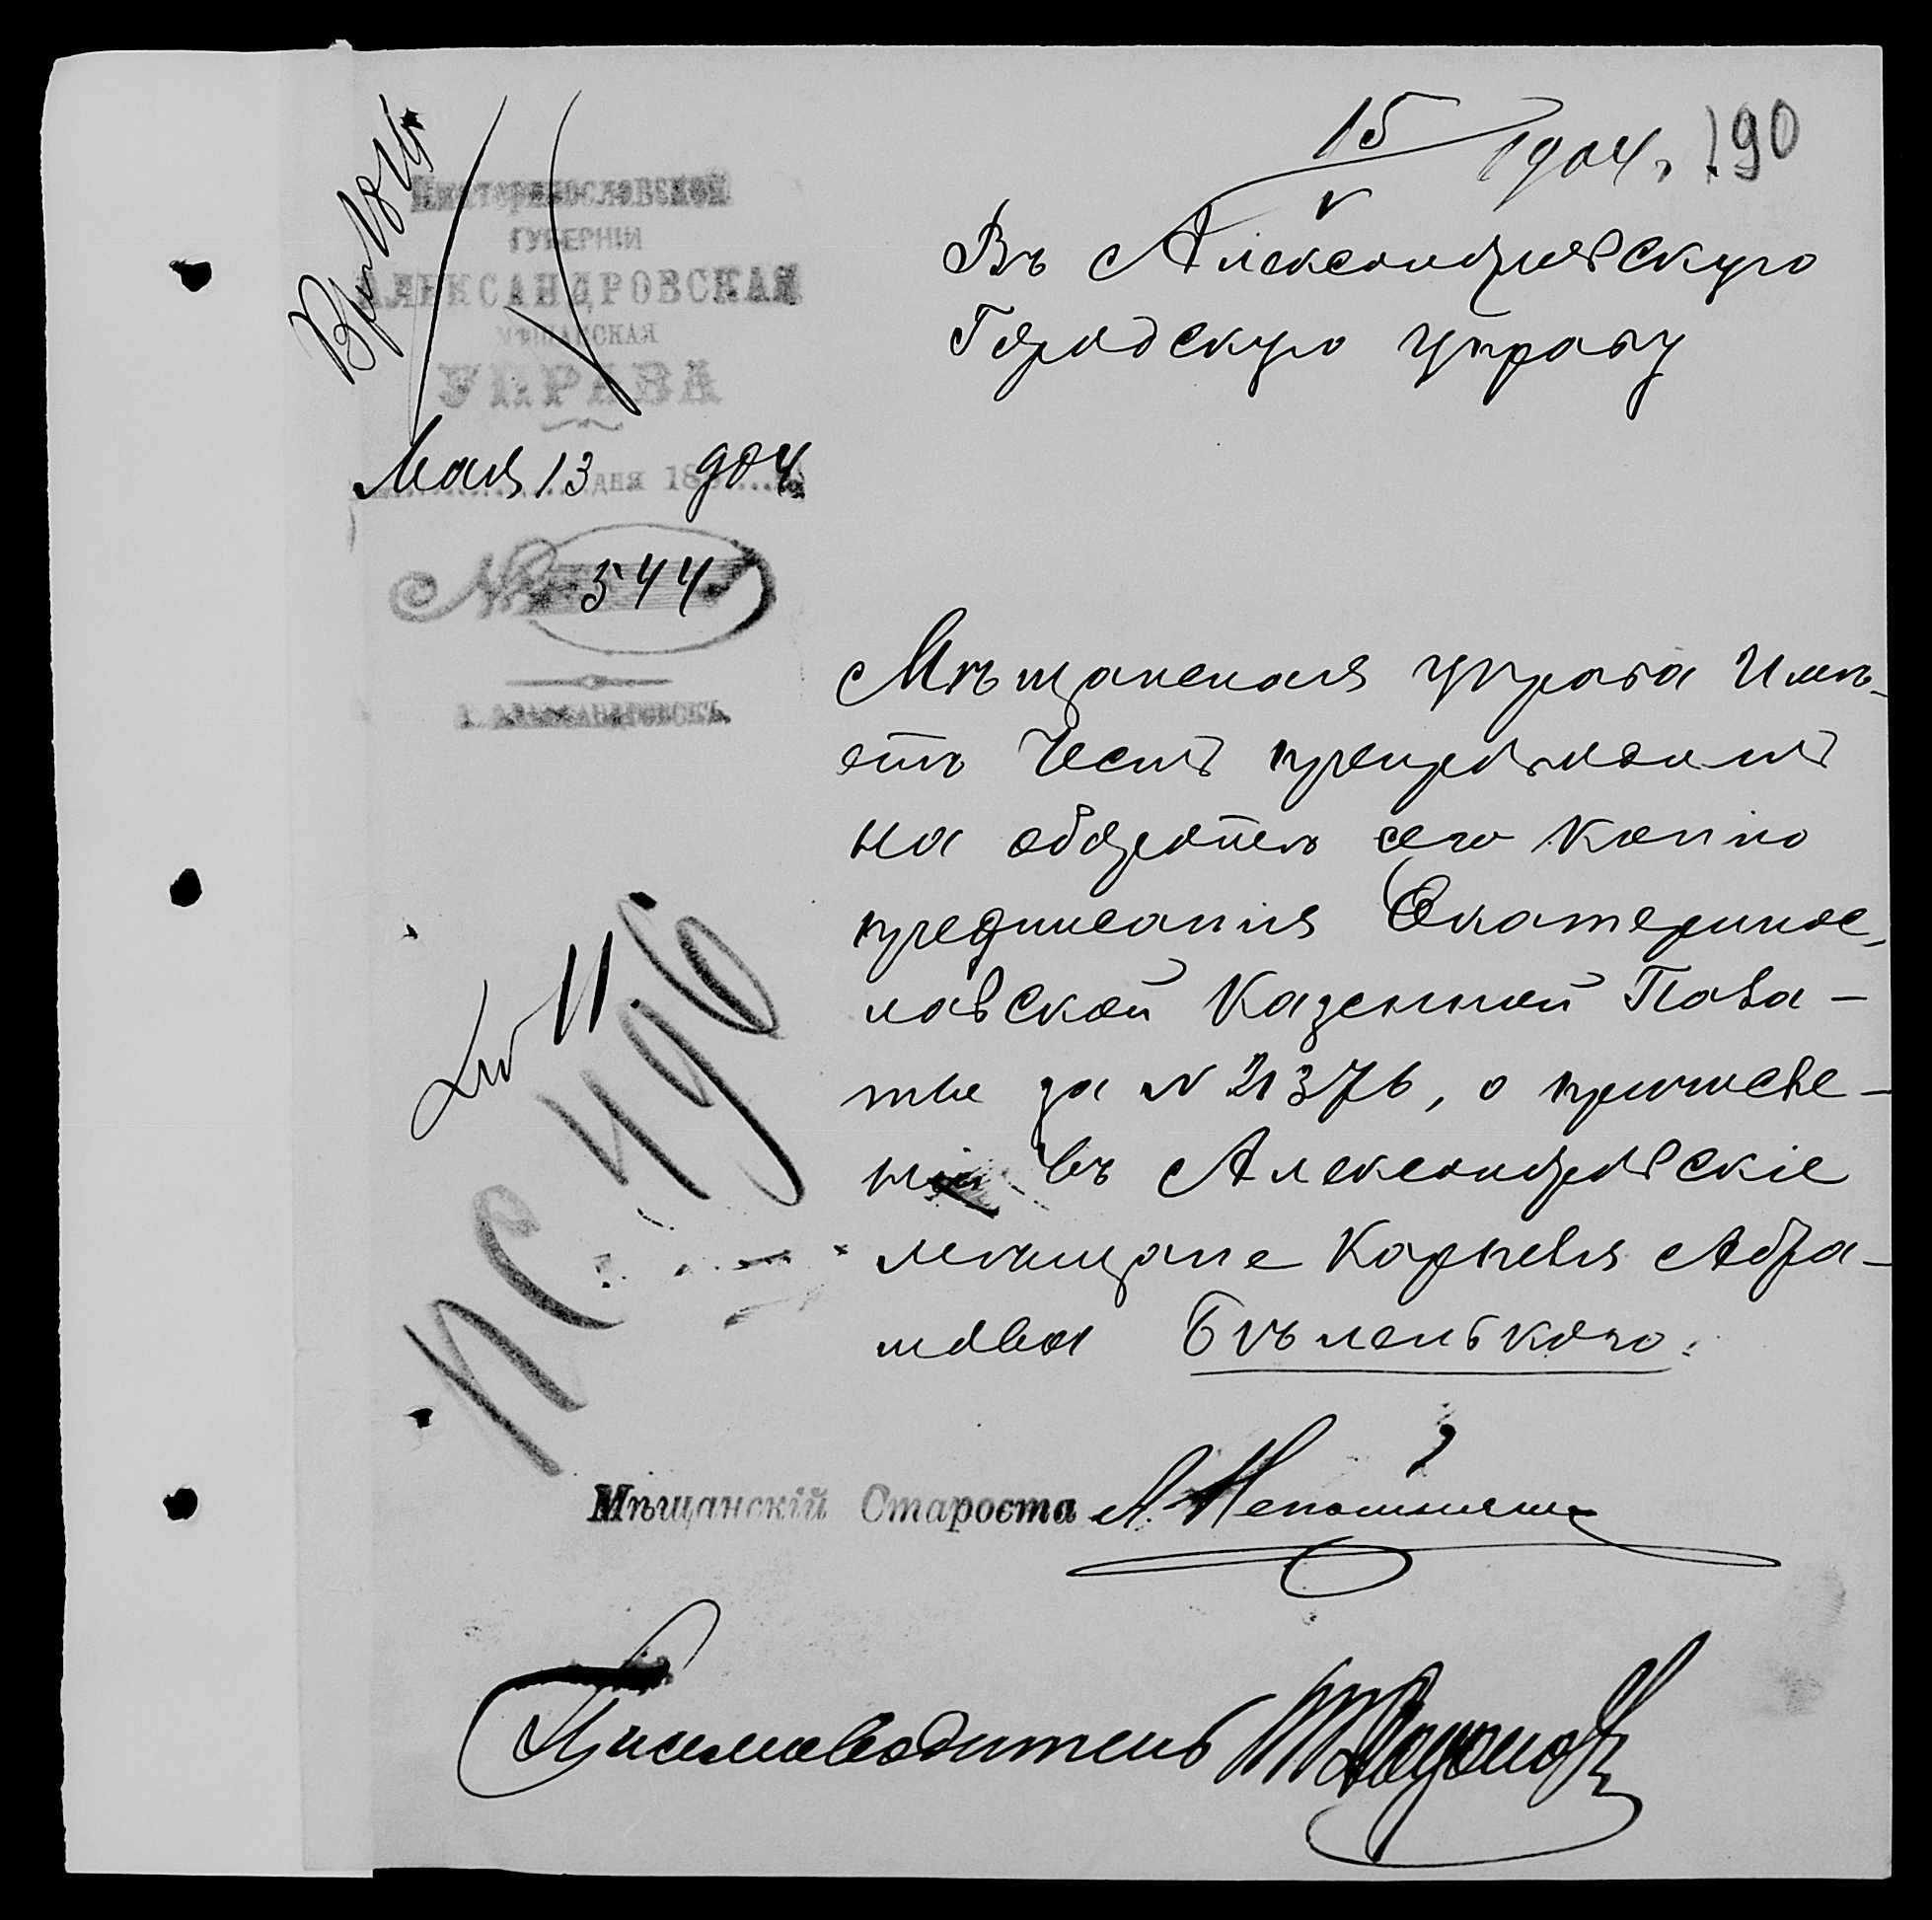 15/V 1904 г. 190
Екатеринославской
ГУБЕРНІИ
АЛЕКСАНДРОВСКАЯ
МѢЩАНСКАЯ
УПРАВА
Мая 13 дня 18 904
№ 544
г. АЛЕКСАНДРОВСКЪ.
Въ Александровскую
Городскую управу
Мѣщанская управа имѣ-
етъ честь препроводить
на оборотѣ сего копію
предписанія Екатеринос-
лавской Казенной Пала-
ты за № 21376, о причисле-
ніи въ Александровскіе
мѣщане Корнѣя Абра-
мова Бѣленького.
11
496
Мѣщанскій Староста
Письмоводитель